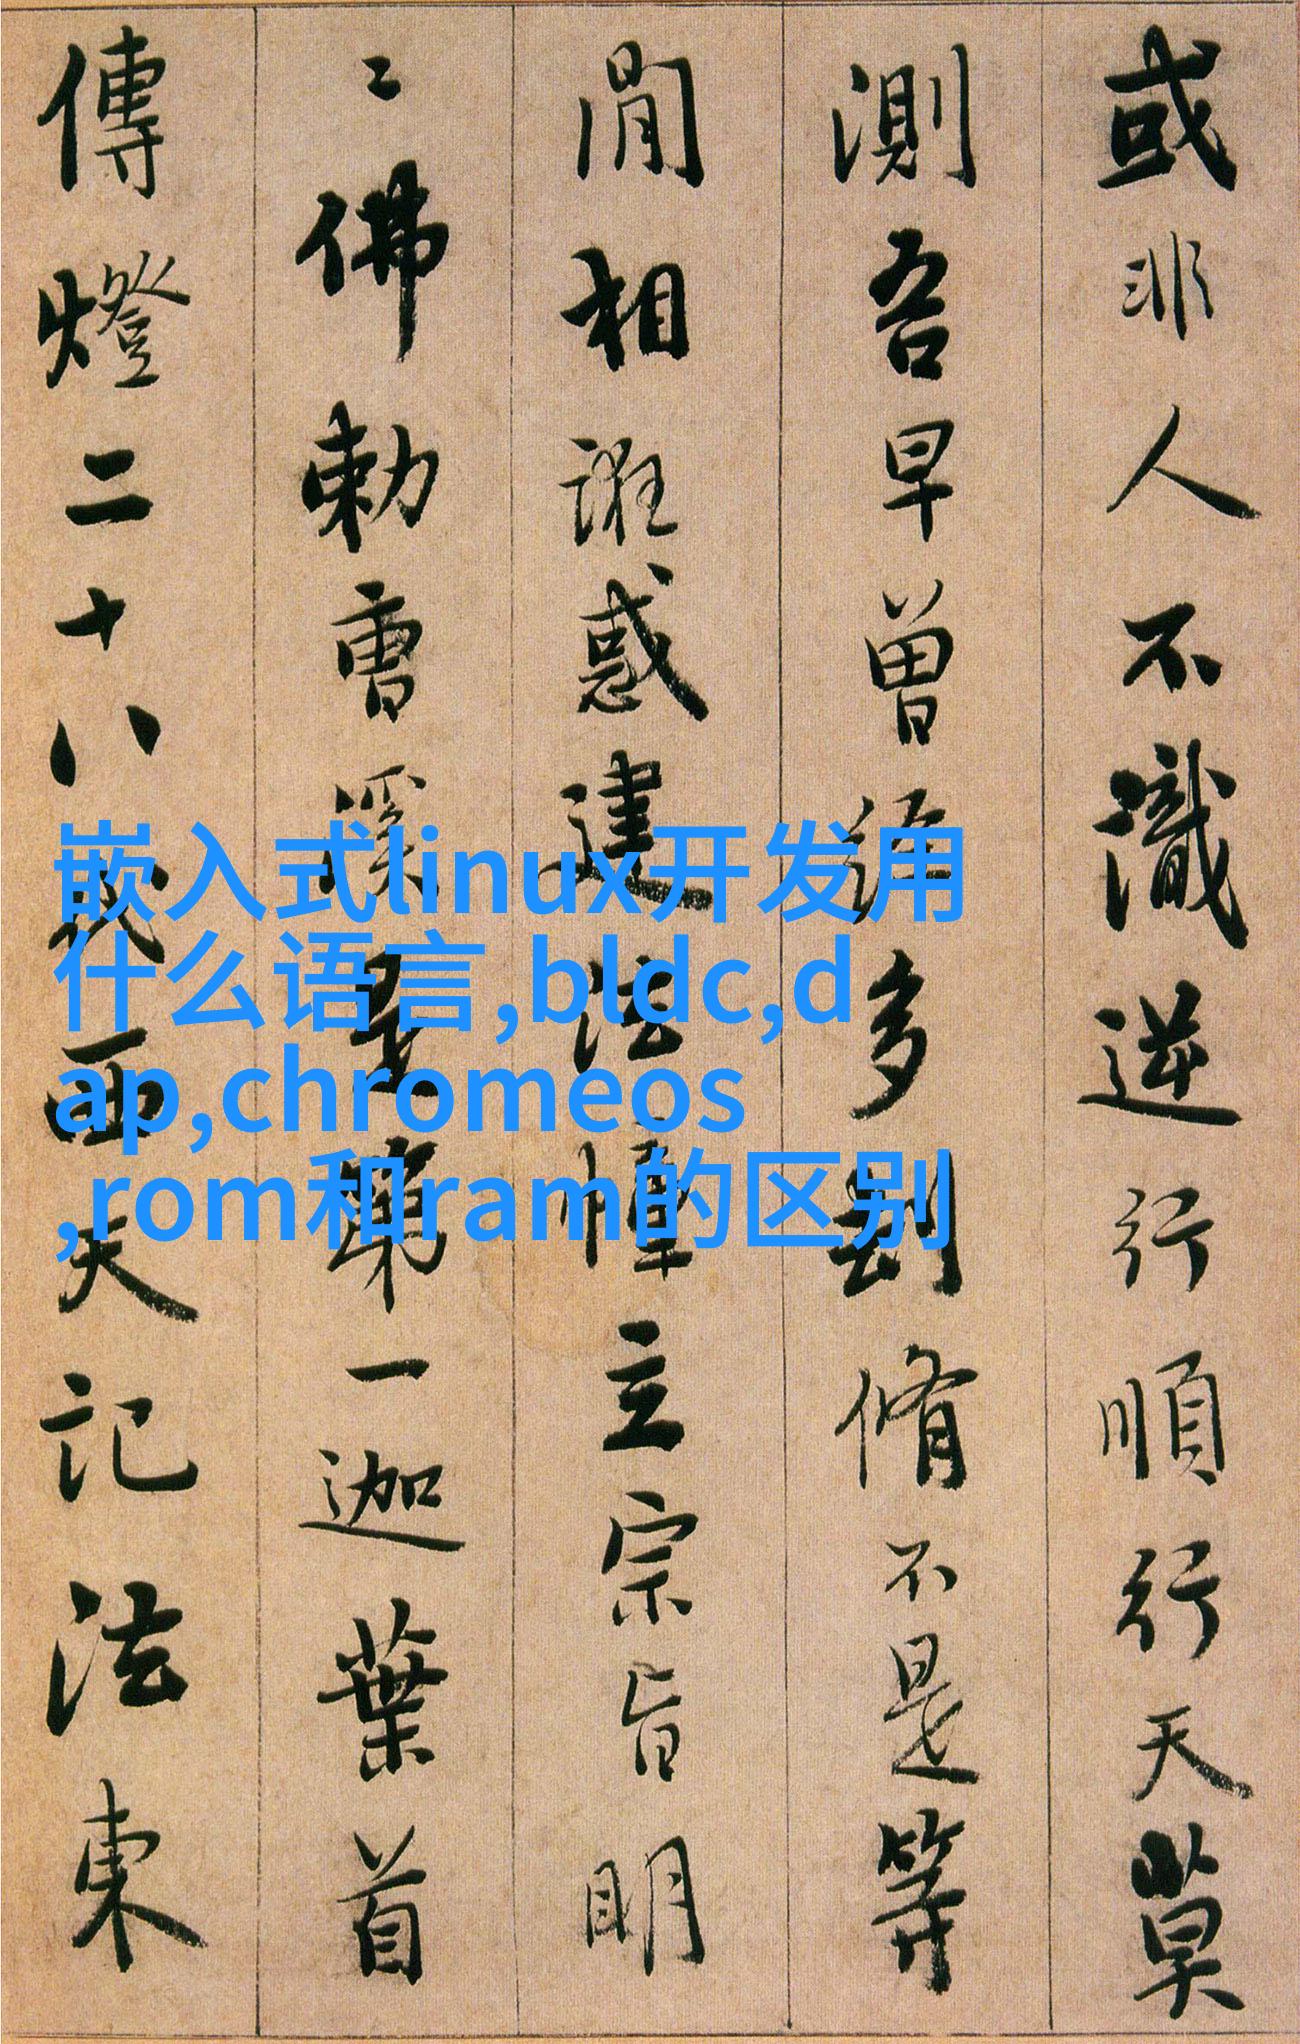 或非人不識逆行順行天莫
測吾早曾逕多刦脩不是等
閒相誑惑建法幢立宗旨明
〻佛勅曹溪是第一迦葉首
傳燈二十八代西天記法東
嵌入式linux开发用
什么语言,bldc,d
ap,chromeos
,rom和ram的区别